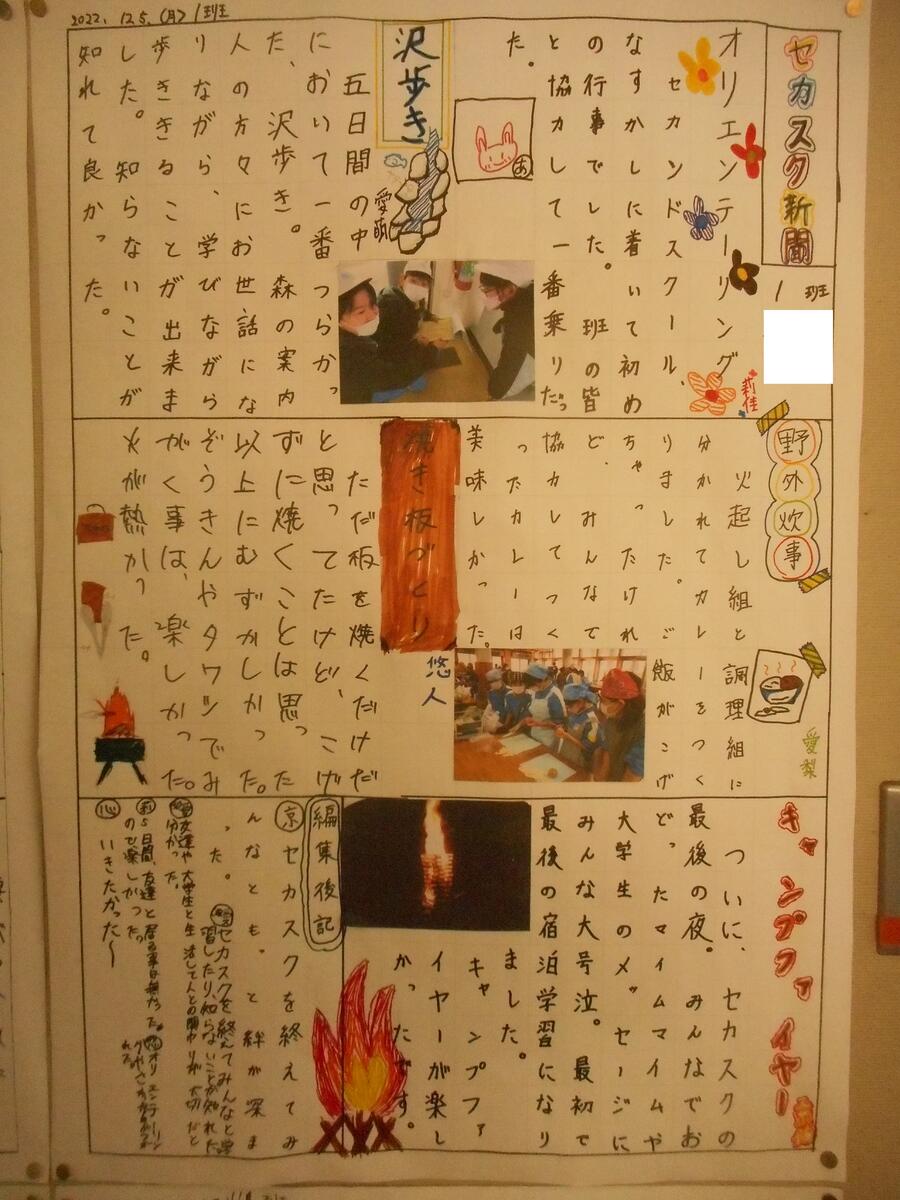 2022. 12.5. (月) 1班
セカスク新聞
1 班
オリエンテーリング
莉佳
セカンドスクール、
なすかしに着いて初め
の行事でした。班の皆
と協力して一番乗りだっ
た。
あ
沢歩き
愛萌
五日間の中
において一番つらかっ
た、沢歩き。森の案内
人の方々にお世話にな
りながら、学びながら
歩ききることが出来ま
した。知らないことが
知れて良かった。
野外炊事
愛梨
火起し組と調理組に
分かれてカレーをつく
りました。ご飯がこげ
ちゃったけれ
ど、みんなで
協力してつく
ったカレーは
美味しかった。
焼き板づくり
悠人
ただ板を焼くだけだ
と思ってたけど、こげ
ずに焼くことは思った
以上にむずかしかった。
ぞうきんやタワシでみ
がく事は、楽しかった。
火が熱かった。
キャンプファイヤー
ついに、セカスクの
最後の夜。みんなでお
どったマイムマイムや
大学生のメッセージに
みんな大号泣。最初で
最後の宿泊学習になり
ました。
キャンプファ
イヤーが楽し
かったです。
編集後記
京 セカスクを終えてみ
んなとも。と絆が深ま
った。
セカスクを終えてみんなと学
習したり、知らないことが知れた
友達や大学生と生活して人との関わりが大切だと
分かった。
莉 5日間、友達と居る事は無かった
ので楽しかった
心 いきたかった〜